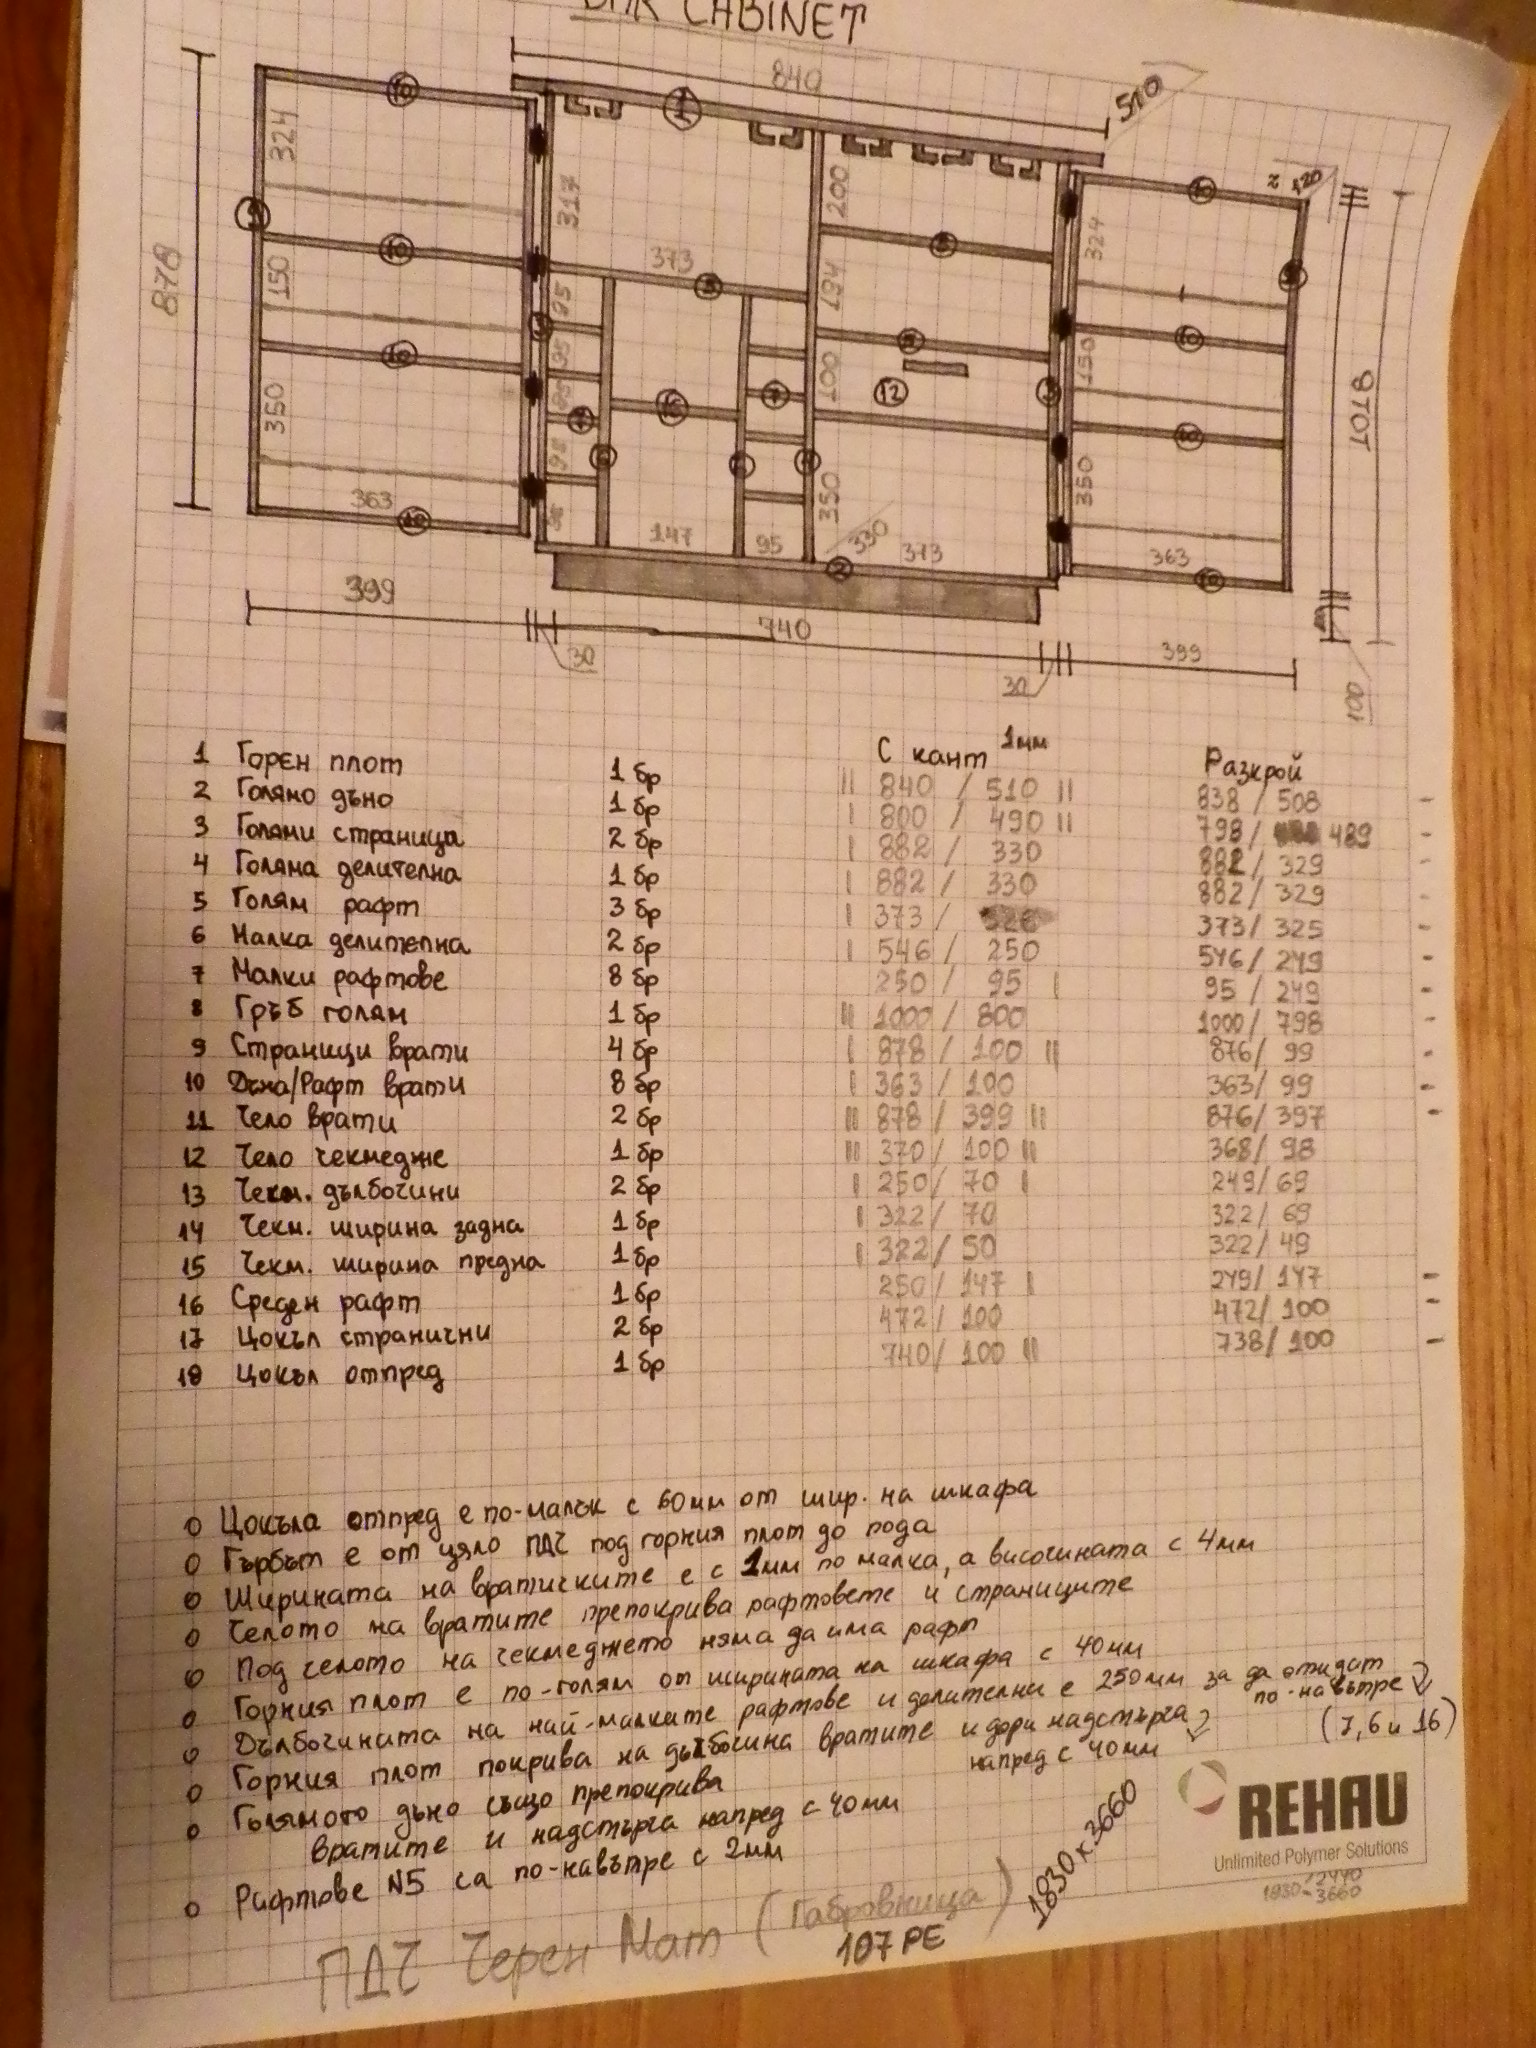 BAR CABINET
840
510
10
1
324
317
200
10
z 120
9
10
5
373
5
194
324
9
878
150
95
3
10
5
10
150
1078
95
100
7
12
3
95
7
16
10
350
95
6
6
4
350
350
363
10
147
95
330
373
2
363
10
399
740
399
30
30
100
С кант 1мм Разкрой
1 Горен плот 1 бр || 840 / 510 || 838 / 508 -
2 Голямо дъно 1 бр | 800 / 490 || 798 / 489 -
3 Голями страница 2 бр | 882 / 330 882 / 329 -
4 Голяма делителна 1 бр | 882 / 330 882 / 329 -
5 Голям рафт 3 бр | 373 / 326 373 / 325 -
6 Малка делителна 2 бр | 546 / 250 546 / 249 -
7 Малки рафтове 8 бр 250 / 95 | 95 / 249 -
8 Гръб голям 1 бр || 1000 / 800 1000 / 798 -
9 Страници врати 4 бр | 878 / 100 || 876 / 99 -
10 Дъна/Рафт врати 8 бр | 363 / 100 363 / 99 -
11 Чело врати 2 бр || 878 / 399 || 876 / 397 -
12 Чело чекмедже 1 бр || 370 / 100 || 368 / 98
13 Чекм. дълбочини 2 бр | 250 / 70 | 249 / 69
14 Чекм. ширина задна 1 бр | 322 / 70 322 / 69
15 Чекм. ширина предна 1 бр | 322 / 50 322 / 49
16 Среден рафт 1 бр 250 / 147 | 249 / 147 -
17 Цокъл странични 2 бр 472 / 100 472 / 100 -
18 Цокъл отпред 1 бр 740 / 100 || 738 / 100 -
o Цокъла отпред е по-малък с 60мм от шир. на шкафа
o Гърбът е от цяло ПДЧ под горния плот до пода
o Ширината на вратичките е с 1мм по малка, а височината с 4мм
o Челото на вратите препокрива рафтовете и страниците
o Под челото на чекмеджето няма да има рафт
o Горния плот е по-голям от ширината на шкафа с 40мм
o Дълбочината на най-малките рафтове и делителни е 250мм за да отидат
по-навътре
(7, 6 и 16)
o Горния плот покрива на дълбочина вратите и дори надстърга
напред с 40мм
o Голямото дъно също препокрива
вратите и надстърга напред с 40мм
o Рафтове N5 са по-навътре с 2мм
ПДЧ Черен Мат (Габровница)
107 PE
1830 x 3660
REHAU
Unlimited Polymer Solutions
1830/2440
-3660